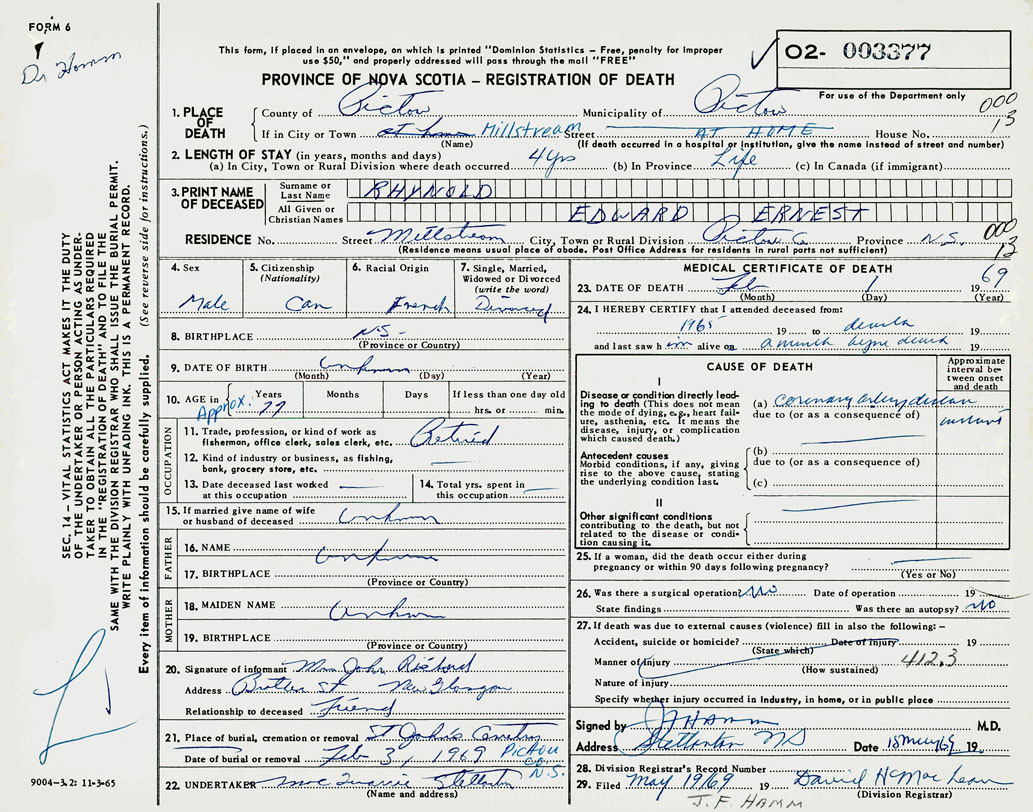 FORM 6
Dr Hamm
This form, if placed in an envelope, on which is printed "Dominion Statistics – Free, penalty for improper
use $50," and properly addressed will pass through the mail "FREE"
PROVINCE OF NOVA SCOTIA – REGISTRATION OF DEATH
O2- 003377
For use of the Department only
000
13
1. PLACE OF DEATH
County of Pictou Municipality of Pictou
If in City or Town at home Millstream Street AT HOME House No.
(Name) (If death occurred in a hospital or institution, give the name instead of street and number)
2. LENGTH OF STAY (in years, months and days)
(a) In City, Town or Rural Division where death occurred 4 yrs (b) In Province Life (c) In Canada (if immigrant)
3. PRINT NAME OF DECEASED
Surname or Last Name RHYNOLD
All Given or Christian Names EDWARD ERNEST
RESIDENCE No. Street Millstream City, Town or Rural Division Pictou Co. Province N.S.
000
13
(Residence means usual place of abode. Post Office Address for residents in rural parts not sufficient)
4. Sex
Male
5. Citizenship
(Nationality)
Can
6. Racial Origin
French
7. Single, Married,
Widowed or Divorced
(write the word)
Divorced
8. BIRTHPLACE N.S.
(Province or Country)
9. DATE OF BIRTH unknown
(Month) (Day) (Year)
10. AGE in Approx. Years 77 Months Days If less than one day old
hrs. or min.
OCCUPATION
11. Trade, profession, or kind of work as
fisherman, office clerk, sales clerk, etc. Retired
12. Kind of industry or business, as fishing,
bank, grocery store, etc.
13. Date deceased last worked
at this occupation
14. Total yrs. spent in
this occupation
15. If married give name of wife
or husband of deceased unknown
FATHER
16. NAME unknown
17. BIRTHPLACE
(Province or Country)
MOTHER
18. MAIDEN NAME unknown
19. BIRTHPLACE
(Province or Country)
20. Signature of informant Mrs John
Address St New Glasgow
Relationship to deceased Friend
21. Place of burial, cremation or removal St John's Cemetery
Date of burial or removal Feb 3, 1969 Pictou
Co.
N.S.
22. UNDERTAKER Stellarton
(Name and address)
MEDICAL CERTIFICATE OF DEATH
23. DATE OF DEATH Feb 1 1969
(Month) (Day) (Year)
24. I HEREBY CERTIFY that I attended deceased from:
1965 19 to death 19
and last saw h im alive on a month before death 19
CAUSE OF DEATH
Approximate
interval be-
tween onset
and death
I
Disease or condition directly lead-
ing to death (This does not mean
the mode of dying, e.g., heart fail-
ure, asthenia, etc. It means the
disease, injury, or complication
which caused death.)
(a) coronary artery disease
due to (or as a consequence of)
instant
Antecedent causes
Morbid conditions, if any, giving
rise to the above cause, stating
the underlying condition last.
(b)
due to (or as a consequence of)
(c)
II
Other significant conditions
contributing to the death, but not
related to the disease or condi-
tion causing it.
25. If a woman, did the death occur either during
pregnancy or within 90 days following pregnancy?
(Yes or No)
26. Was there a surgical operation? No Date of operation 19
State findings Was there an autopsy? NO
27. If death was due to external causes (violence) fill in also the following: –
Accident, suicide or homicide? Date of injury 19
(State which)
Manner of injury 412.3
(How sustained)
Nature of injury
Specify whether injury occurred in industry, in home, or in public place
Signed by J F HAMM M.D.
Address Stellarton NS Date 15 May 69 19
28. Division Registrar's Record Number
29. Filed May 19/69 19 David H. MacLean
(Division Registrar)
J. F. HAMM
SEC. 14 – VITAL STATISTICS ACT MAKES IT THE DUTY
OF THE UNDERTAKER OR PERSON ACTING AS UNDER-
TAKER TO OBTAIN ALL THE PARTICULARS REQUIRED
IN THE "REGISTRATION OF DEATH" AND TO FILE THE
SAME WITH THE DIVISION REGISTRAR WHO SHALL ISSUE THE BURIAL PERMIT.
WRITE PLAINLY WITH UNFADING INK. THIS IS A PERMANENT RECORD.
Every item of information should be carefully supplied. (See reverse side for instructions.)
9004-3.2: 11-3-65